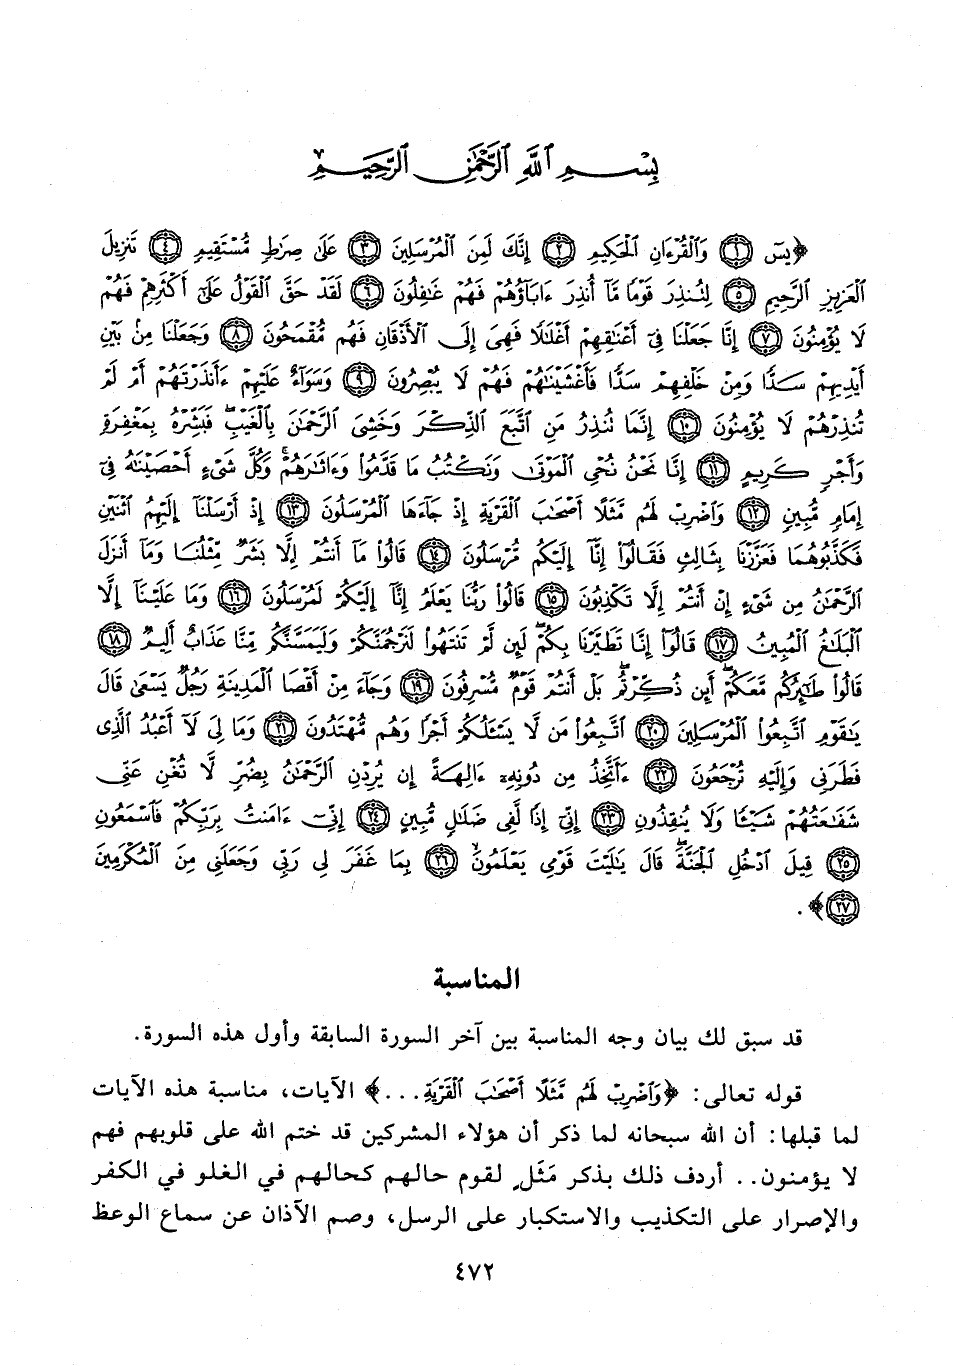 بِسْمِ اللَّهِ الرَّحْمَٰنِ الرَّحِيمِ
﴿يسٓ ١ وَالْقُرْءَانِ الْحَكِيمِ ٢ إِنَّكَ لَمِنَ الْمُرْسَلِينَ ٣ عَلَىٰ صِرَٰطٍ مُّسْتَقِيمٍ ٤ تَنزِيلَ
الْعَزِيزِ الرَّحِيمِ ٥ لِتُنذِرَ قَوْمًا مَّآ أُنذِرَ ءَابَآؤُهُمْ فَهُمْ غَٰفِلُونَ ٦ لَقَدْ حَقَّ الْقَوْلُ عَلَىٰٓ أَكْثَرِهِمْ فَهُمْ
لَا يُؤْمِنُونَ ٧ إِنَّا جَعَلْنَا فِىٓ أَعْنَٰقِهِمْ أَغْلَٰلًا فَهِىَ إِلَى الْأَذْقَانِ فَهُم مُّقْمَحُونَ ٨ وَجَعَلْنَا مِنۢ بَيْنِ
أَيْدِيهِمْ سَدًّا وَمِنْ خَلْفِهِمْ سَدًّا فَأَغْشَيْنَٰهُمْ فَهُمْ لَا يُبْصِرُونَ ٩ وَسَوَآءٌ عَلَيْهِمْ ءَأَنذَرْتَهُمْ أَمْ لَمْ
تُنذِرْهُمْ لَا يُؤْمِنُونَ ١٠ إِنَّمَا تُنذِرُ مَنِ اتَّبَعَ الذِّكْرَ وَخَشِىَ الرَّحْمَٰنَ بِالْغَيْبِ ۖ فَبَشِّرْهُ بِمَغْفِرَةٍ
وَأَجْرٍ كَرِيمٍ ١١ إِنَّا نَحْنُ نُحْىِ الْمَوْتَىٰ وَنَكْتُبُ مَا قَدَّمُوا۟ وَءَاثَٰرَهُمْ ۚ وَكُلَّ شَىْءٍ أَحْصَيْنَٰهُ فِىٓ
إِمَامٍ مُّبِينٍ ١٢ وَاضْرِبْ لَهُم مَّثَلًا أَصْحَٰبَ الْقَرْيَةِ إِذْ جَآءَهَا الْمُرْسَلُونَ ١٣ إِذْ أَرْسَلْنَآ إِلَيْهِمُ اثْنَيْنِ
فَكَذَّبُوهُمَا فَعَزَّزْنَا بِثَالِثٍ فَقَالُوٓا۟ إِنَّآ إِلَيْكُم مُّرْسَلُونَ ١٤ قَالُوا۟ مَآ أَنتُمْ إِلَّا بَشَرٌ مِّثْلُنَا وَمَآ أَنزَلَ
الرَّحْمَٰنُ مِن شَىْءٍ إِنْ أَنتُمْ إِلَّا تَكْذِبُونَ ١٥ قَالُوا۟ رَبُّنَا يَعْلَمُ إِنَّآ إِلَيْكُمْ لَمُرْسَلُونَ ١٦ وَمَا عَلَيْنَآ إِلَّا
الْبَلَٰغُ الْمُبِينُ ١٧ قَالُوٓا۟ إِنَّا تَطَيَّرْنَا بِكُمْ ۖ لَئِن لَّمْ تَنتَهُوا۟ لَنَرْجُمَنَّكُمْ وَلَيَمَسَّنَّكُم مِّنَّا عَذَابٌ أَلِيمٌ ١٨
قَالُوا۟ طَٰٓئِرُكُم مَّعَكُمْ ۚ أَئِن ذُكِّرْتُم ۚ بَلْ أَنتُمْ قَوْمٌ مُّسْرِفُونَ ١٩ وَجَآءَ مِنْ أَقْصَا الْمَدِينَةِ رَجُلٌ يَسْعَىٰ قَالَ
يَٰقَوْمِ اتَّبِعُوا۟ الْمُرْسَلِينَ ٢٠ اتَّبِعُوا۟ مَن لَّا يَسْـَٔلُكُمْ أَجْرًا وَهُم مُّهْتَدُونَ ٢١ وَمَا لِىَ لَآ أَعْبُدُ الَّذِى
فَطَرَنِى وَإِلَيْهِ تُرْجَعُونَ ٢٢ ءَأَتَّخِذُ مِن دُونِهِۦٓ ءَالِهَةً إِن يُرِدْنِ الرَّحْمَٰنُ بِضُرٍّ لَّا تُغْنِ عَنِّى
شَفَٰعَتُهُمْ شَيْـًٔا وَلَا يُنقِذُونِ ٢٣ إِنِّىٓ إِذًا لَّفِى ضَلَٰلٍ مُّبِينٍ ٢٤ إِنِّىٓ ءَامَنتُ بِرَبِّكُمْ فَاسْمَعُونِ
٢٥ قِيلَ ادْخُلِ الْجَنَّةَ ۖ قَالَ يَٰلَيْتَ قَوْمِى يَعْلَمُونَ ٢٦ بِمَا غَفَرَ لِى رَبِّى وَجَعَلَنِى مِنَ الْمُكْرَمِينَ
٢٧﴾.
المناسبة
قد سبق لك بيان وجه المناسبة بين آخر السورة السابقة وأول هذه السورة.
قوله تعالى: ﴿وَاضْرِبْ لَهُم مَّثَلًا أَصْحَٰبَ الْقَرْيَةِ...﴾ الآيات، مناسبة هذه الآيات
لما قبلها: أن الله سبحانه لما ذكر أن هؤلاء المشركين قد ختم الله على قلوبهم فهم
لا يؤمنون.. أردف ذلك بذكر مَثَلٍ لقوم حالهم كحالهم في الغلو في الكفر
والإصرار على التكذيب والاستكبار على الرسل، وصم الآذان عن سماع الوعظ
٤٧٢